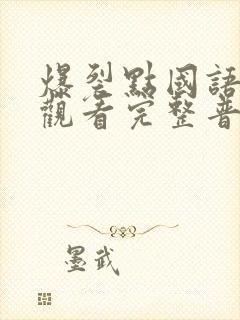 爆裂點國語
觀看完整普
墨武